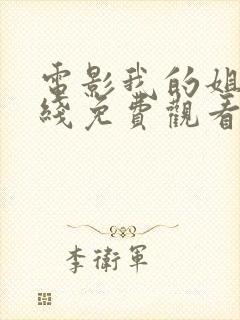 電影我的姐
綫免費觀看
李衛軍